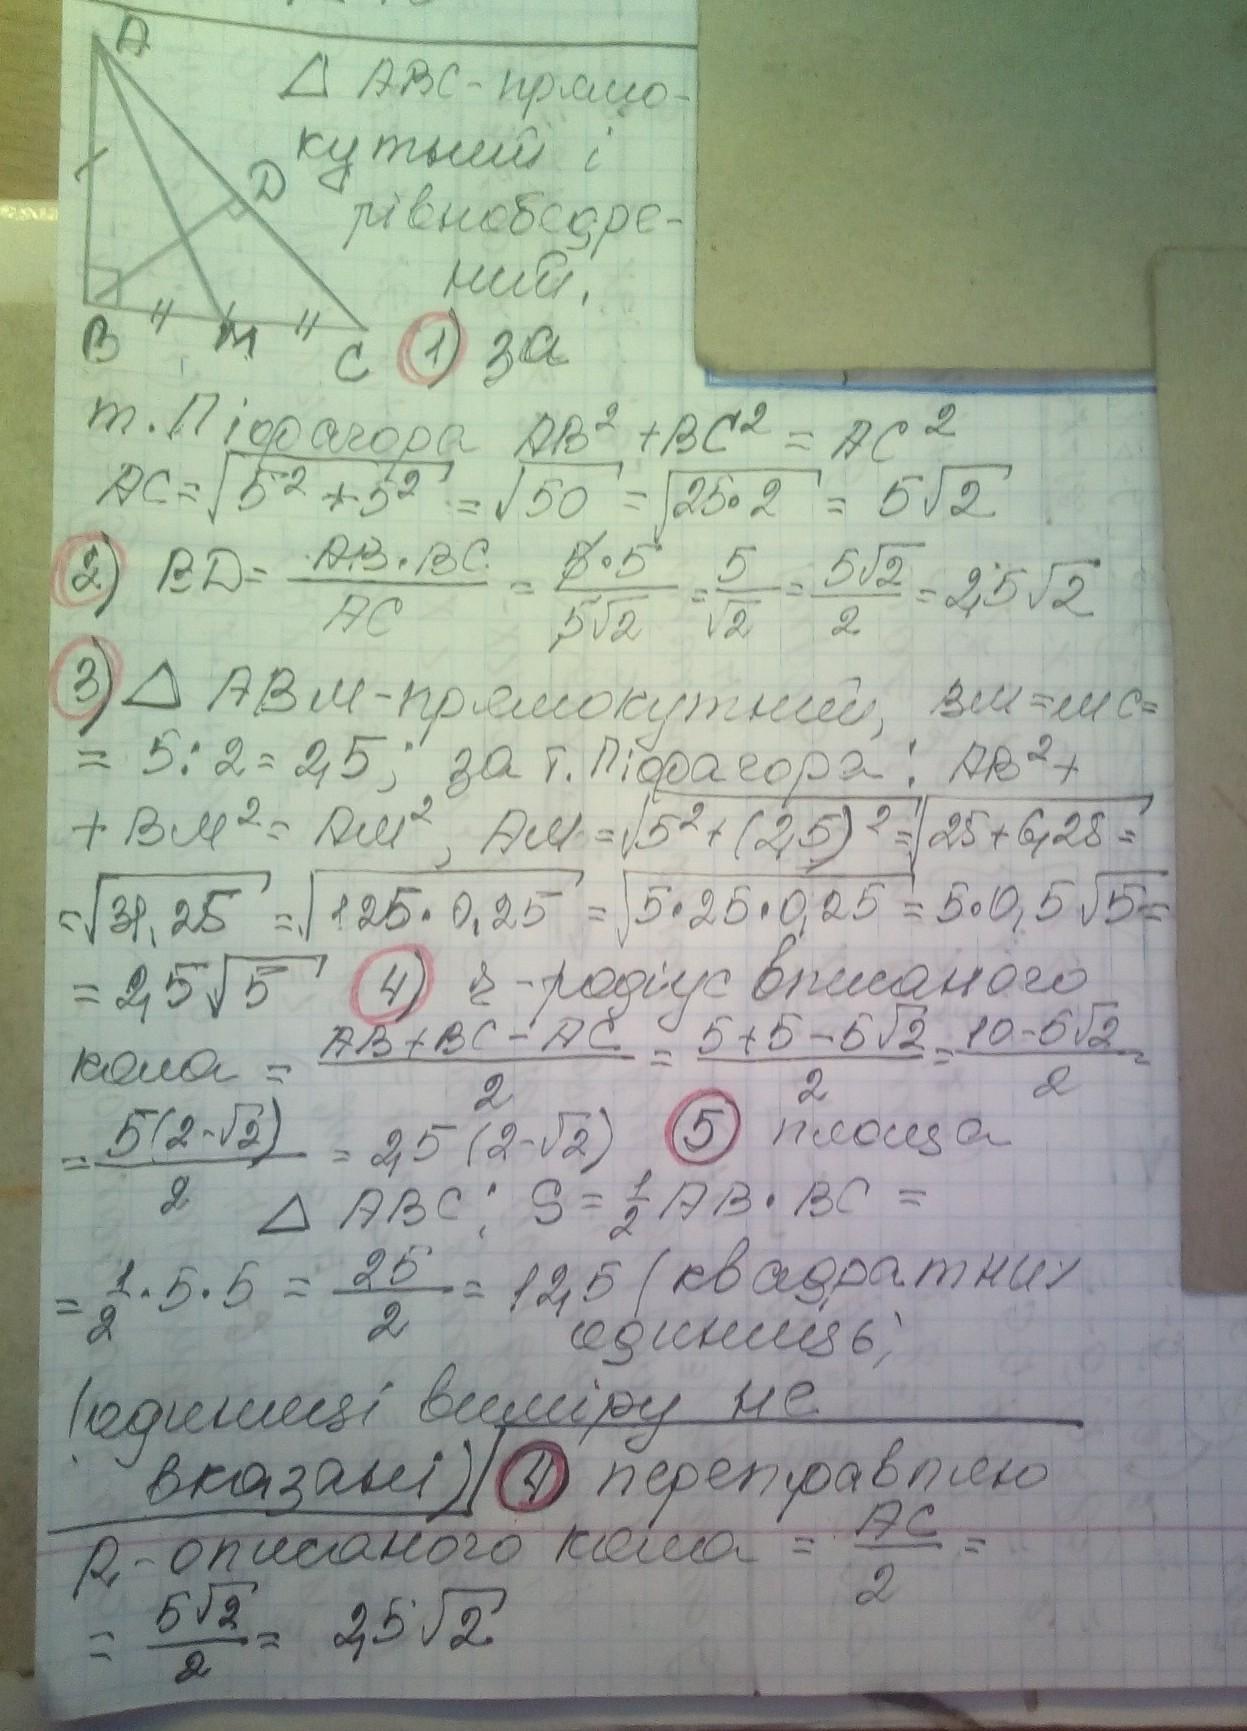 A
Δ ABC - прямо-
кутний і
D
рівнобедре-
ний.
B M C 1) за
т. Піфагора AB² + BC² = AC²
AC = √(5² + 5²) = √50 = √(25·2) = 5√2
2) BD = AB·BC/AC = 5·5/5√2 = 5/√2 = 5√2/2 = 2,5√2
3) Δ ABM - прямокутний, BM = MC =
= 5:2 = 2,5; за т. Піфагора: AB² +
+ BM² = AM², AM = √(5² + (2,5)²) = √(25 + 6,25) =
= √31,25 = √(125·0,25) = √(5·25·0,25) = 5·0,5√5 =
= 2,5√5 4) r - радіус вписаного
кола = (AB + BC - AC)/2 = (5 + 5 - 5√2)/2 = (10 - 5√2)/2 =
= 5(2-√2)/2 = 2,5(2-√2) 5 площа
Δ ABC: S = 1/2 AB·BC =
= 1/2·5·5 = 25/2 = 12,5 (квадратних
одиниць;
(одиниці виміру не
вказані) 4 переправляю
R - описаного кола = AC/2 =
= 5√2/2 = 2,5√2